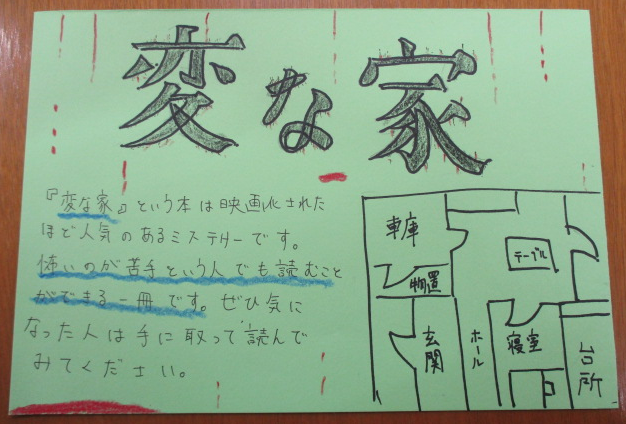 変な家
『変な家』という本は映画化された
ほど人気のあるミステリーです。
怖いのが苦手という人でも読むこと
ができる一冊です。ぜひ気に
なった人は手に取って読んで
みてください。
車庫
テーブル
物置
玄関
ホール
寝室
台所